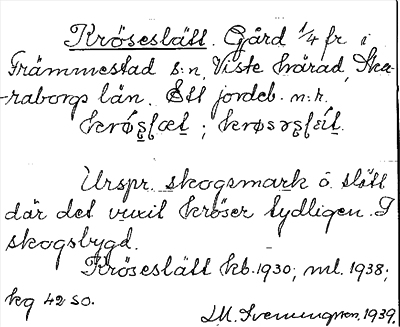 Kröseslätt. Gård 1/4 fr i
Främmestad s:n, Viste härad, Ska-
raborgs län. Ett jordeb. n:r.
Urspr. skogsmark o. slätt
där det vuxit kröser tydligen. I
skogsbygd.
Kröseslätt kb. 1930; ml. 1938;
kg 42 SO.
1939.